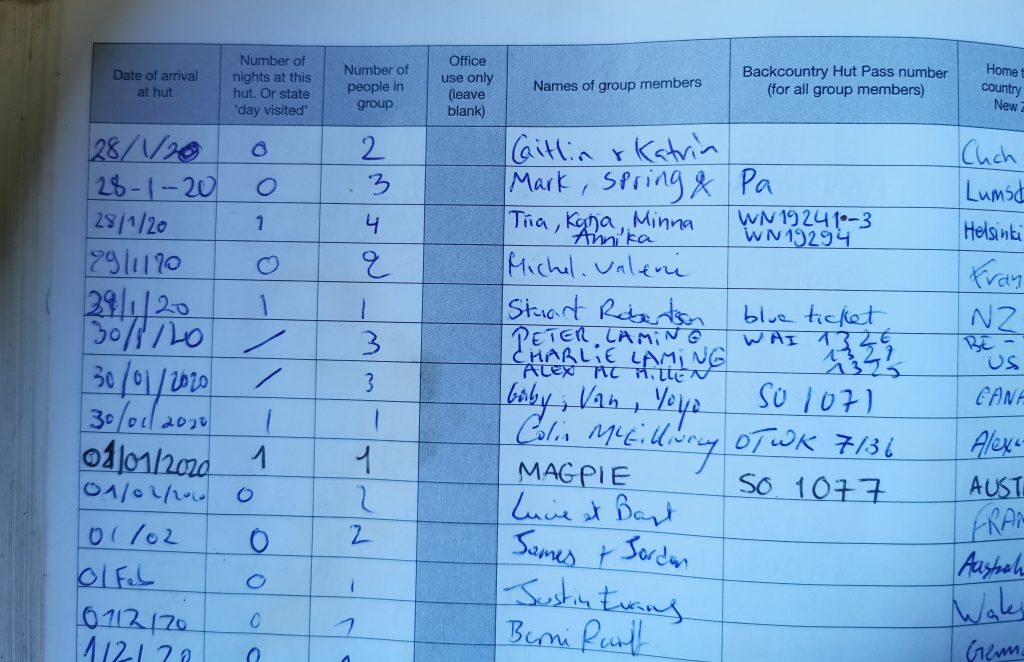 Date of arrival at hut
Number of nights at this hut. Or state 'day visited'
Number of people in group
Office use only (leave blank)
Names of group members
Backcountry Hut Pass number (for all group members)
Home t
country
New Z
28/1/20 0 2 Caitlin + Katrin Chch
28-1-20 0 3 Mark, Spring & Pa Lumsd
28/1/20 1 4 Tiia, Katja, Minna WN19241-3 Helsinki
Annika WN19294
29/1/20 0 2 Michel. Valerie Fran
29/1/20 1 1 Stuart Robertson blue ticket NZ
30/1/20 / 3 PETER LAMING WAI 1326 BE -
CHARLIE LAMING 1327 US
ALEX MC MILLEN 1325
30/01/2020 / 3 Gaby, Van, Yoyo SO 1071 CANA
30/01/2020 1 1 Colin OTWK 7136 Alex
01/01/2020 1 1 MAGPIE SO 1077 AUST
01/02/2020 0 2 Lucie et Bart FRAN
01/02 0 2 James + Jordan Australi
01 Feb 0 1 Justin Evans Wales
01/2/20 0 1 Berni Germ
1/2/20 0